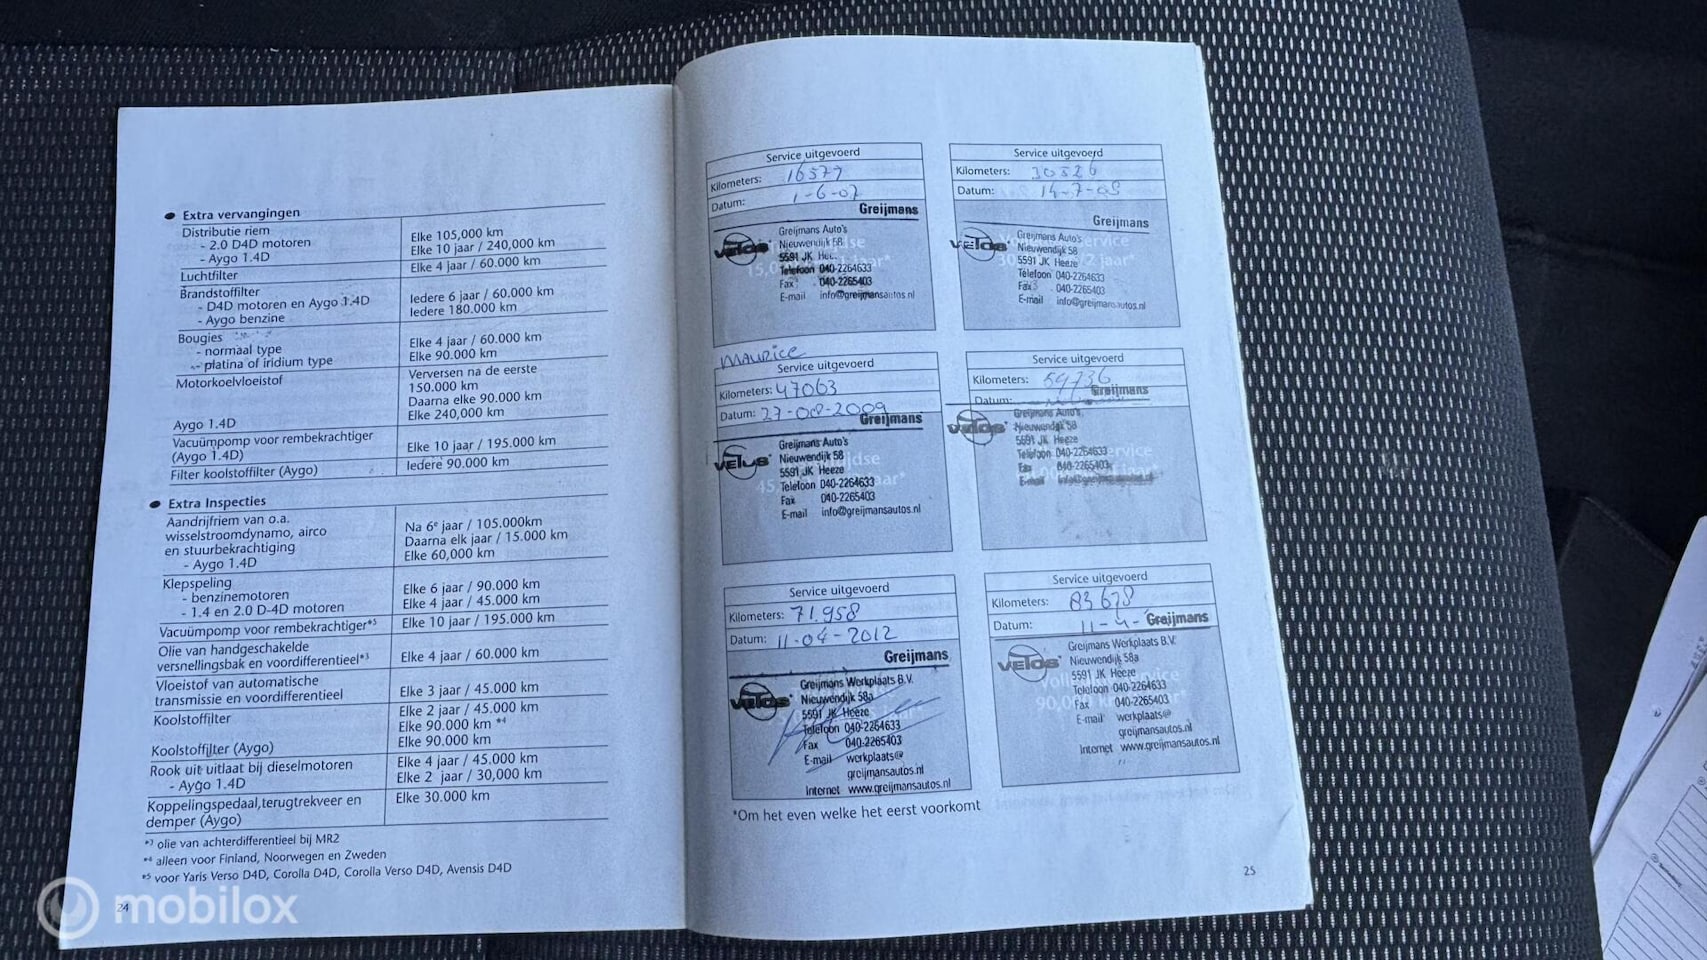 ● Extra vervangingen
Distributie riem
- 2.0 D4D motoren Elke 105,000 km
- Aygo 1.4D Elke 10 jaar / 240,000 km
Luchtfilter Elke 4 jaar / 60.000 km
Brandstoffilter
- D4D motoren en Aygo 1.4D Iedere 6 jaar / 60.000 km
- Aygo benzine Iedere 180.000 km
Bougies
- normaal type Elke 4 jaar / 60.000 km
- platina of iridium type Elke 90.000 km
Motorkoelvloeistof Verversen na de eerste
150.000 km
Daarna elke 90.000 km
Aygo 1.4D Elke 240,000 km
Vacuümpomp voor rembekrachtiger
(Aygo 1.4D) Elke 10 jaar / 195.000 km
Filter koolstoffilter (Aygo) Iedere 90.000 km
● Extra Inspecties
Aandrijfriem van o.a.
wisselstroomdynamo, airco Na 6e jaar / 105.000km
en stuurbekrachtiging Daarna elk jaar / 15.000 km
- Aygo 1.4D Elke 60,000 km
Klepspeling
- benzinemotoren Elke 6 jaar / 90.000 km
- 1.4 en 2.0 D-4D motoren Elke 4 jaar / 45.000 km
Vacuümpomp voor rembekrachtiger*5 Elke 10 jaar / 195.000 km
Olie van handgeschakelde
versnellingsbak en voordifferentieel*3 Elke 4 jaar / 60.000 km
Vloeistof van automatische
transmissie en voordifferentieel Elke 3 jaar / 45.000 km
Koolstoffilter Elke 2 jaar / 45.000 km
Elke 90.000 km *4
Koolstoffilter (Aygo) Elke 90.000 km
Rook uit uitlaat bij dieselmotoren Elke 4 jaar / 45.000 km
- Aygo 1.4D Elke 2 jaar / 30,000 km
Koppelingspedaal,terugtrekveer en Elke 30.000 km
demper (Aygo)
*3 olie van achterdifferentieel bij MR2
*4 alleen voor Finland, Noorwegen en Zweden
*5 voor Yaris Verso D4D, Corolla D4D, Corolla Verso D4D, Avensis D4D
24
Service uitgevoerd
Kilometers: 16577
Datum: 1-6-07
Greijmans
velos
Greijmans Auto's
Nieuwendijk 58
5591 JK
Telefoon 040-2264633
Fax 040-2265403
E-mail info@greijmansautos.nl
Service uitgevoerd
Kilometers: 30326
Datum: 14-7-08
Greijmans
velos
Greijmans Auto's
Nieuwendijk 58
5591 JK Heeze
Telefoon 040-2264633
Fax 040-2265403
E-mail info@greijmansautos.nl
Maurice
Service uitgevoerd
Kilometers: 47063
Datum: 27-08-2009
Greijmans
velos
Greijmans Auto's
Nieuwendijk 58
5591 JK Heeze
Telefoon 040-2264633
Fax 040-2265403
E-mail info@greijmansautos.nl
Service uitgevoerd
Kilometers: 59736
Datum:
Greijmans
velos
Greijmans Auto's
Nieuwendijk 58
5591 JK Heeze
Telefoon 040-2264633
Fax 040-2265403
E-mail
Service uitgevoerd
Kilometers: 71.958
Datum: 11-04-2012
Greijmans
velos
Greijmans Werkplaats B.V.
Nieuwendijk 58a
5591 JK Heeze
Telefoon 040-2264633
Fax 040-2265403
E-mail werkplaats@
greijmansautos.nl
Internet www.greijmansautos.nl
Service uitgevoerd
Kilometers: 83678
Datum: 11-4-
Greijmans
velos
Greijmans Werkplaats B.V.
Nieuwendijk 58a
5591 JK Heeze
Telefoon 040-2264633
Fax 040-2265403
E-mail werkplaats@
greijmansautos.nl
Internet www.greijmansautos.nl
*Om het even welke het eerst voorkomt
25
mobilox